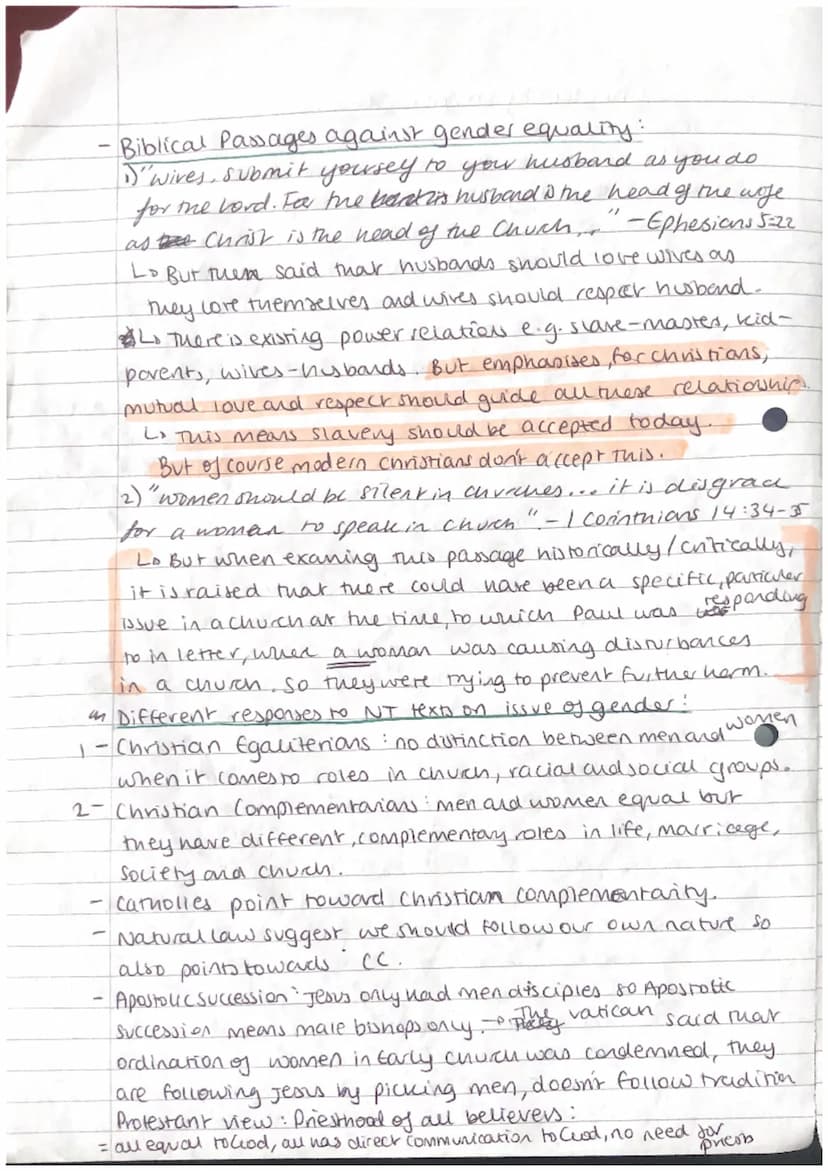 - Biblical Passages against gender equality:
1) "wives, submit yourself to your husband as you do
for the Lord. For the husband is the head of the wife
as Christ is the head of the Church..." - Ephesians 5:22
↳ But then said that husbands should love wives as
they love themselves and wives should respect husband.
↳ There is existing power relations e.g. slave-master, kid-
parents, wives-husbands. But emphasises, for christians,
mutual love and respect should guide all these relationships.
↳ This means slavery should be accepted today.
But of course modern christians don't accept this.
2) "women should be silent in churches... it is disgrace
for a woman to speak in church". - 1 Corinthians 14:34-35
↳ But when examing this passage historically/critically,
it is raised that there could have been a specific, particular
issue in a church at the time, to which Paul was responding
to in letter, when a woman was causing disturbances
in a church. So they were trying to prevent further harm.
Different responses to NT texts on issue of gender:
1 - Christian Egaliterians: no distinction between men and women
when it comes to roles in church, racial and social groups.
2 - Christian Complementarians: men and women equal but
they have different, complementary roles in life, marriage,
society and church.
- Catholics point toward Christian complementarity.
- Natural law suggest we should follow our own nature so
also points towards CC.
- Apostolic succession: Jesus only had men disciples so Apostolic
succession means male bishops only. → The vatican said that
ordination of women in Early church was condemned, they
are following Jesus by picking men, doesn't follow tradition
Protestant view: Priesthood of all believers:
= all equal to God, all has direct communication to God, no need for priests